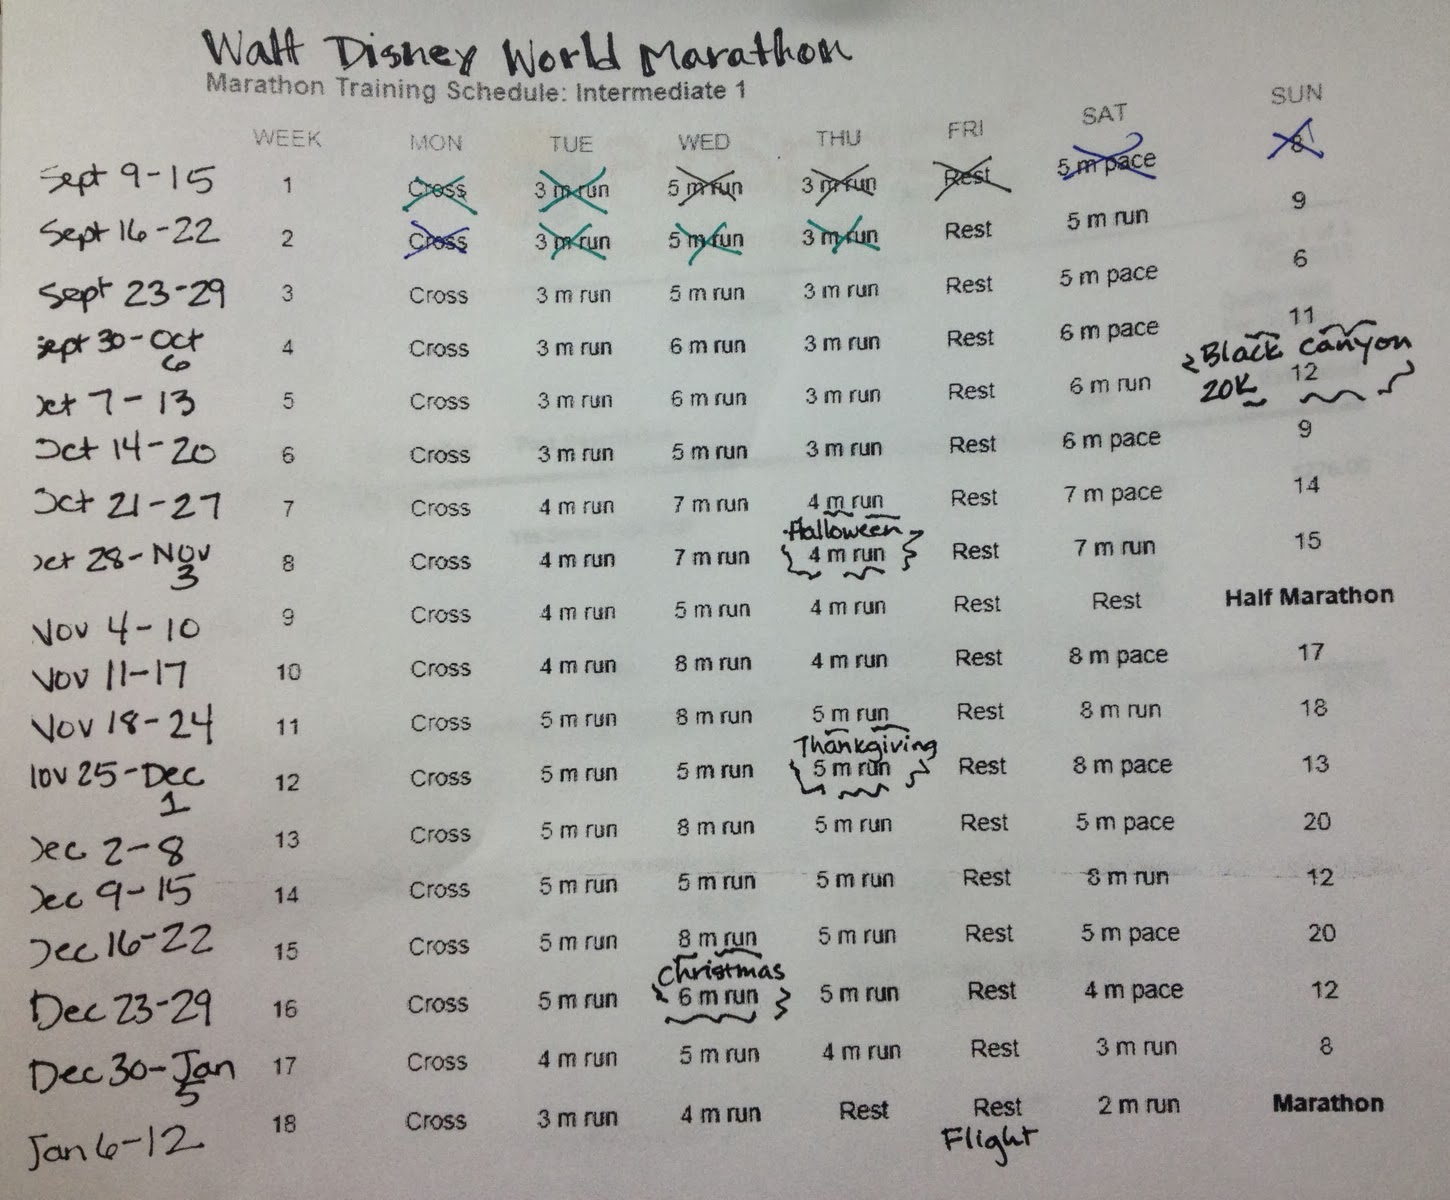 Walt Disney World Marathon
Marathon Training Schedule: Intermediate 1
WEEK MON TUE WED THU FRI SAT SUN
Sept 9-15 1 Cross 3 m run 5 m run 3 m run Rest 5 m pace 8
Sept 16-22 2 Cross 3 m run 5 m run 3 m run Rest 5 m run 9
Sept 23-29 3 Cross 3 m run 5 m run 3 m run Rest 5 m pace 6
Sept 30-Oct 6 4 Cross 3 m run 6 m run 3 m run Rest 6 m pace 11
Black Canyon 20K
Oct 7-13 5 Cross 3 m run 6 m run 3 m run Rest 6 m run 12
Oct 14-20 6 Cross 3 m run 5 m run 3 m run Rest 6 m pace 9
Oct 21-27 7 Cross 4 m run 7 m run 4 m run Rest 7 m pace 14
Halloween
Oct 28-Nov 3 8 Cross 4 m run 7 m run 4 m run Rest 7 m run 15
Nov 4-10 9 Cross 4 m run 5 m run 4 m run Rest Rest Half Marathon
Nov 11-17 10 Cross 4 m run 8 m run 4 m run Rest 8 m pace 17
Nov 18-24 11 Cross 5 m run 8 m run 5 m run Rest 8 m run 18
Thankgiving
Nov 25-Dec 1 12 Cross 5 m run 5 m run 5 m run Rest 8 m pace 13
Dec 2-8 13 Cross 5 m run 8 m run 5 m run Rest 5 m pace 20
Dec 9-15 14 Cross 5 m run 5 m run 5 m run Rest 8 m run 12
Dec 16-22 15 Cross 5 m run 8 m run 5 m run Rest 5 m pace 20
Christmas
Dec 23-29 16 Cross 5 m run 6 m run 5 m run Rest 4 m pace 12
Dec 30-Jan 5 17 Cross 4 m run 5 m run 4 m run Rest 3 m run 8
Jan 6-12 18 Cross 3 m run 4 m run Rest Rest 2 m run Marathon
Flight